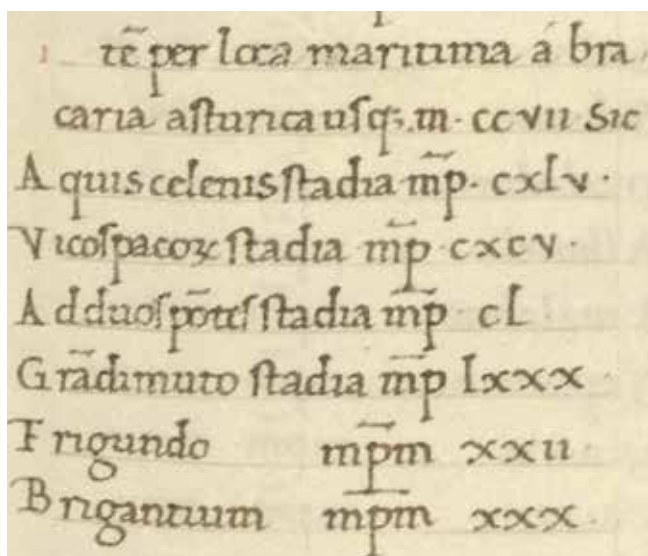 ı tē per loca maritima á bra
caria asturica usq; m· ccvii sic
Aquis celenis stadia m̄p· cxlv·
Vicospacoꝝ stadia m̄p cxcv·
Adduos pōtes stadia m̄p cL
Grādimuto stadia m̄p lxxx·
Frigundo m̄pm xxii·
Brigantium m̄pm xxx·